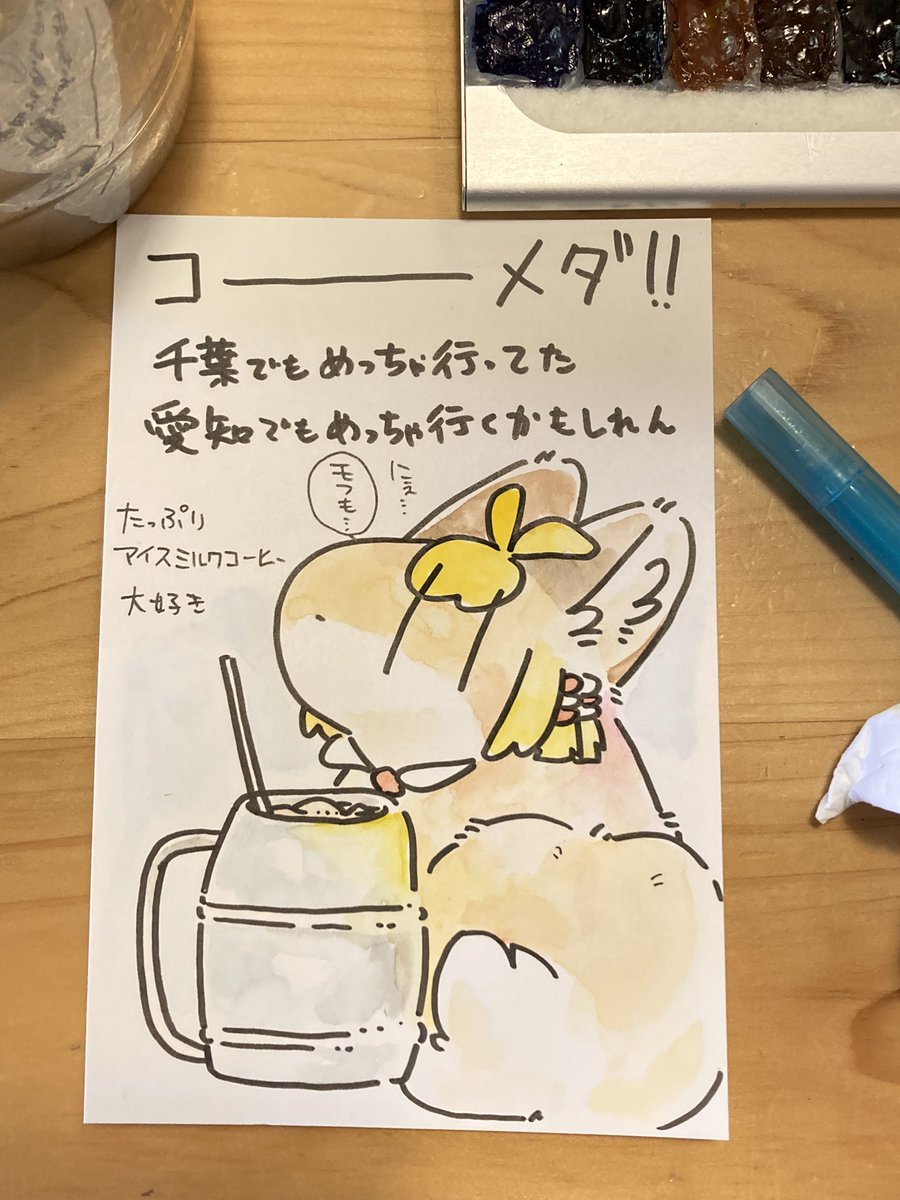 コーーーメダ!!
千葉でもめっちゃ行ってた
愛知でもめっちゃ行くかもしれん
にぇ…
モフも…
たっぷり
アイスミルクコーヒー
大好き